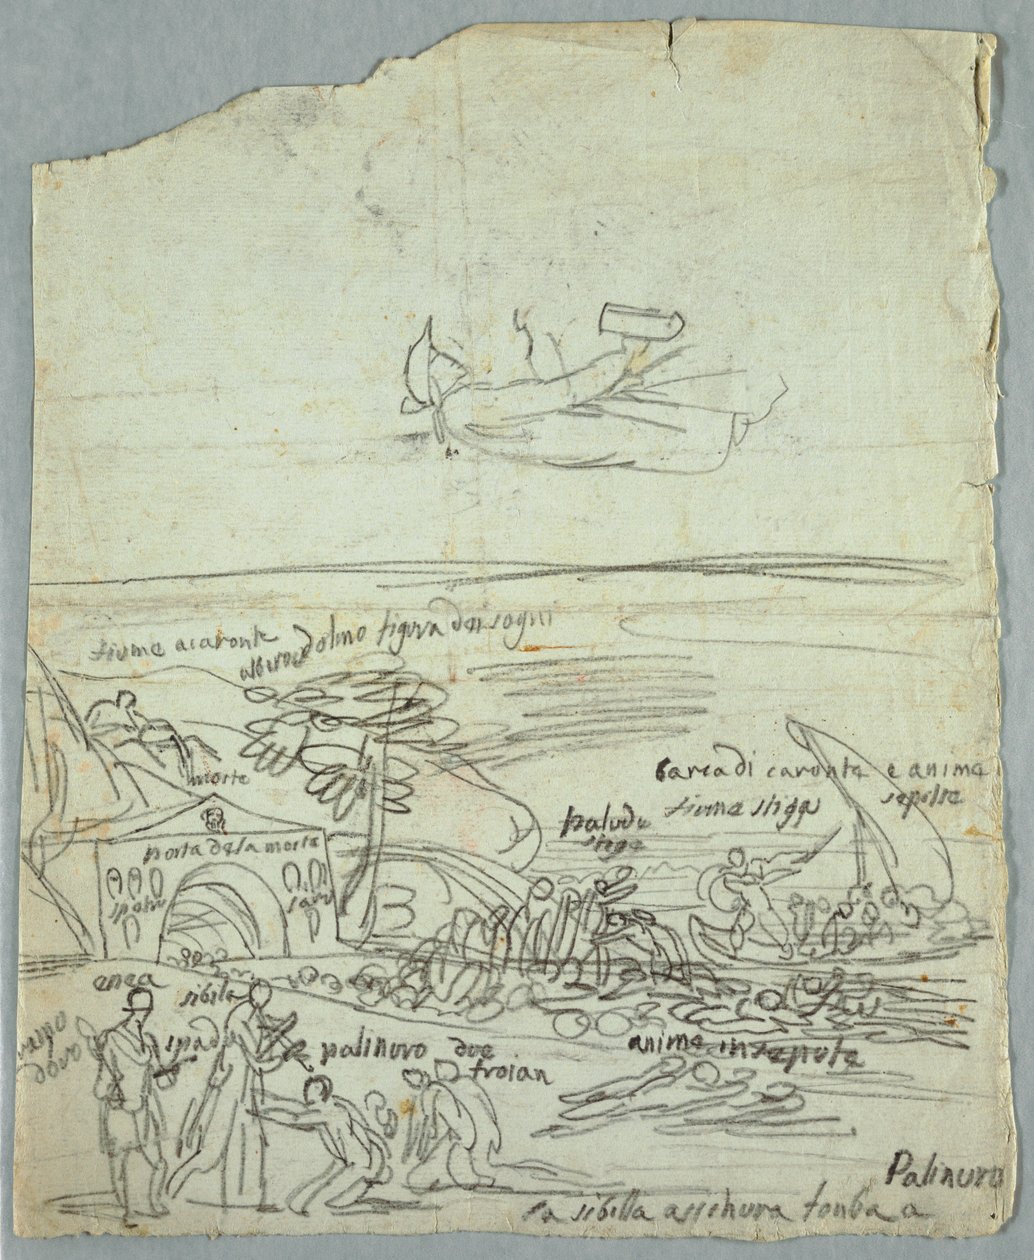 fiume acaronte
albero dolmo figura dei sogni
morte
barca di caronte e anime
sepolte
fiume stige
palude
stige
porta dela morte
enea
sibila
ramo
doro
spada
palinuro due
troian
anime insepolte
Palinuro
la sibilla assichura tonba a